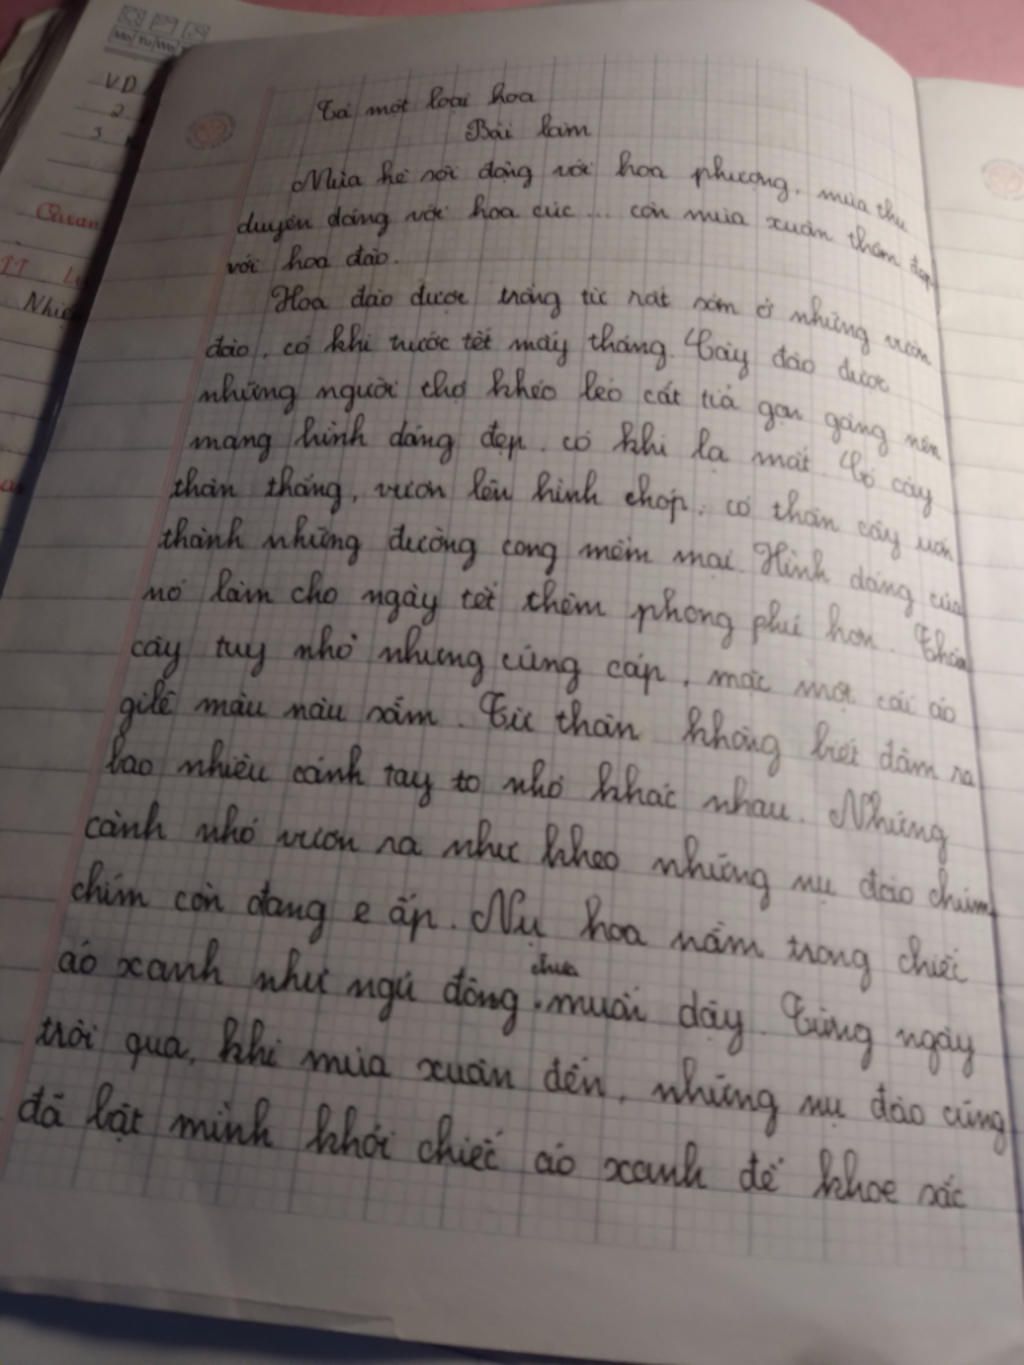 Mo Tu We
V.D
2
3
Tả một loại hoa
Bài làm
Mùa hè sôi động với hoa phượng, mùa thu
duyên dáng với hoa cúc... còn mùa xuân thêm đẹp
với hoa đào.
Hoa đào được trồng từ rất sớm ở những vườn
đào, có khi trước tết mấy tháng. Cây đào được
những người thợ khéo léo cắt tỉa gọn gàng nên
mang hình dáng đẹp, có khi lạ mắt. Có cây
thân thẳng, vươn lên hình chóp, có thân cây uốn
thành những đường cong mềm mại. Hình dáng của
nó làm cho ngày tết thêm phong phú hơn. Thân
cây tuy nhỏ nhưng cứng cáp, mặc một cái áo
gilê màu nâu sẫm. Từ thân không biết đâm ra
bao nhiêu cánh tay to nhỏ khác nhau. Những
cành nhỏ vươn ra như khoe những nụ đào chúm
chím còn đang e ấp. Nụ hoa nằm trong chiếc
áo xanh như ngủ đông chưa muốn dậy. Từng ngày
trôi qua, khi mùa xuân đến, những nụ đào cũng
đã bật mình khỏi chiếc áo xanh để khoe sắc